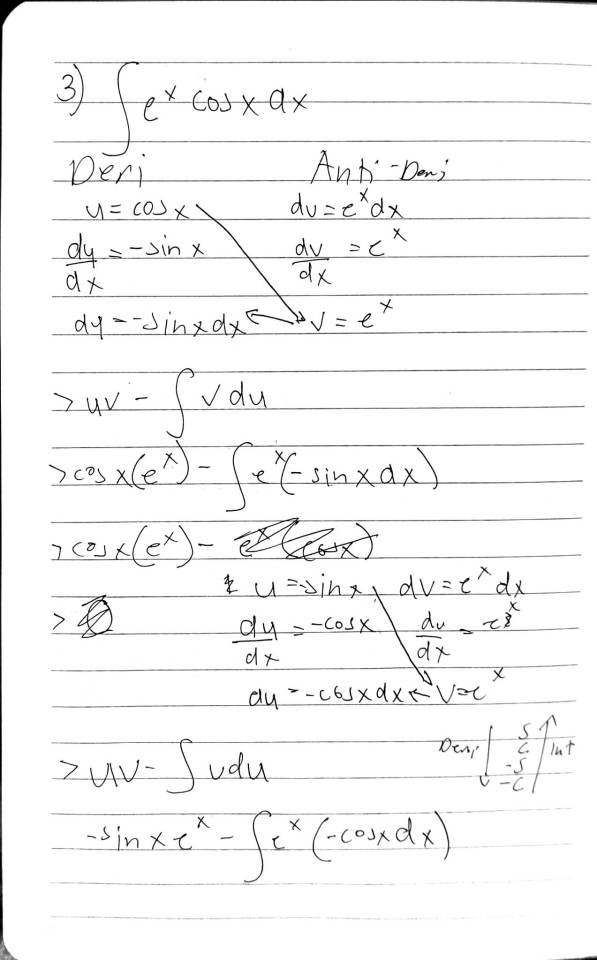 3) ∫ e^x cos x dx
Deri Anti-Deri
u = cos x dv = e^x dx
du/dx = -sin x dv/dx = e^x
du = -sin x dx v = e^x
> uv - ∫ v du
> cos x (e^x) - ∫ e^x (-sin x dx)
> cos x (e^x) -
u = -sin x dv = e^x dx
>
du/dx = -cos x dv/dx = e^x
du = -cos x dx v = e^x
> uv - ∫ v du
Deri S C -S -C Int
-sin x e^x - ∫ e^x (-cos x dx)